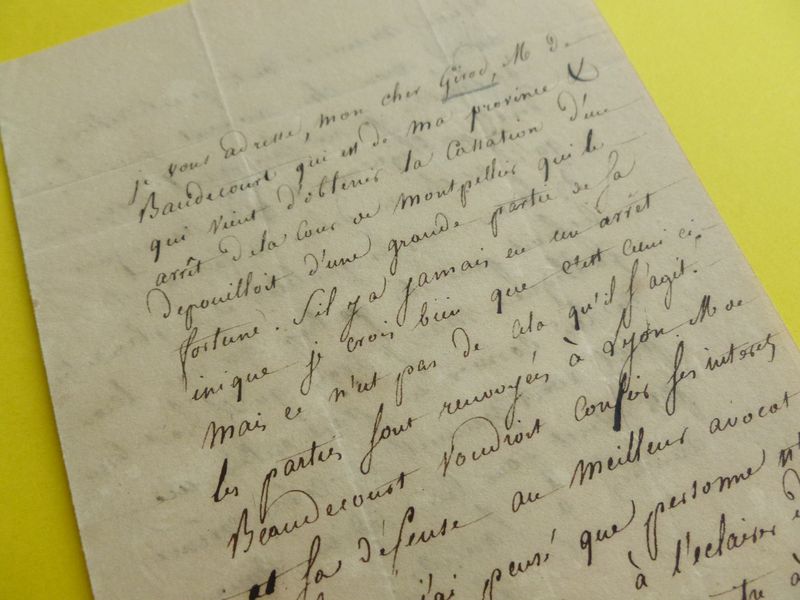 je vous adresse, mon cher Girod, M de
Baudecourt qui est de ma province X
qui vient d'obtenir la Cassation d'un
arrêt de la Cour de Montpellier qui le
depouilloit d'une grande partie de sa
fortune. S'il y a jamais eu un arrêt
inique je crois bien que c'est celui ci.
Mais ce n'est pas de cela qu'il s'agit.
les parties sont renvoyées à Lyon. M de
Beaudecourt voudroit confier ses interets
et sa défense au meilleur avocat
j'ai pensé que personne
à l'eclairer